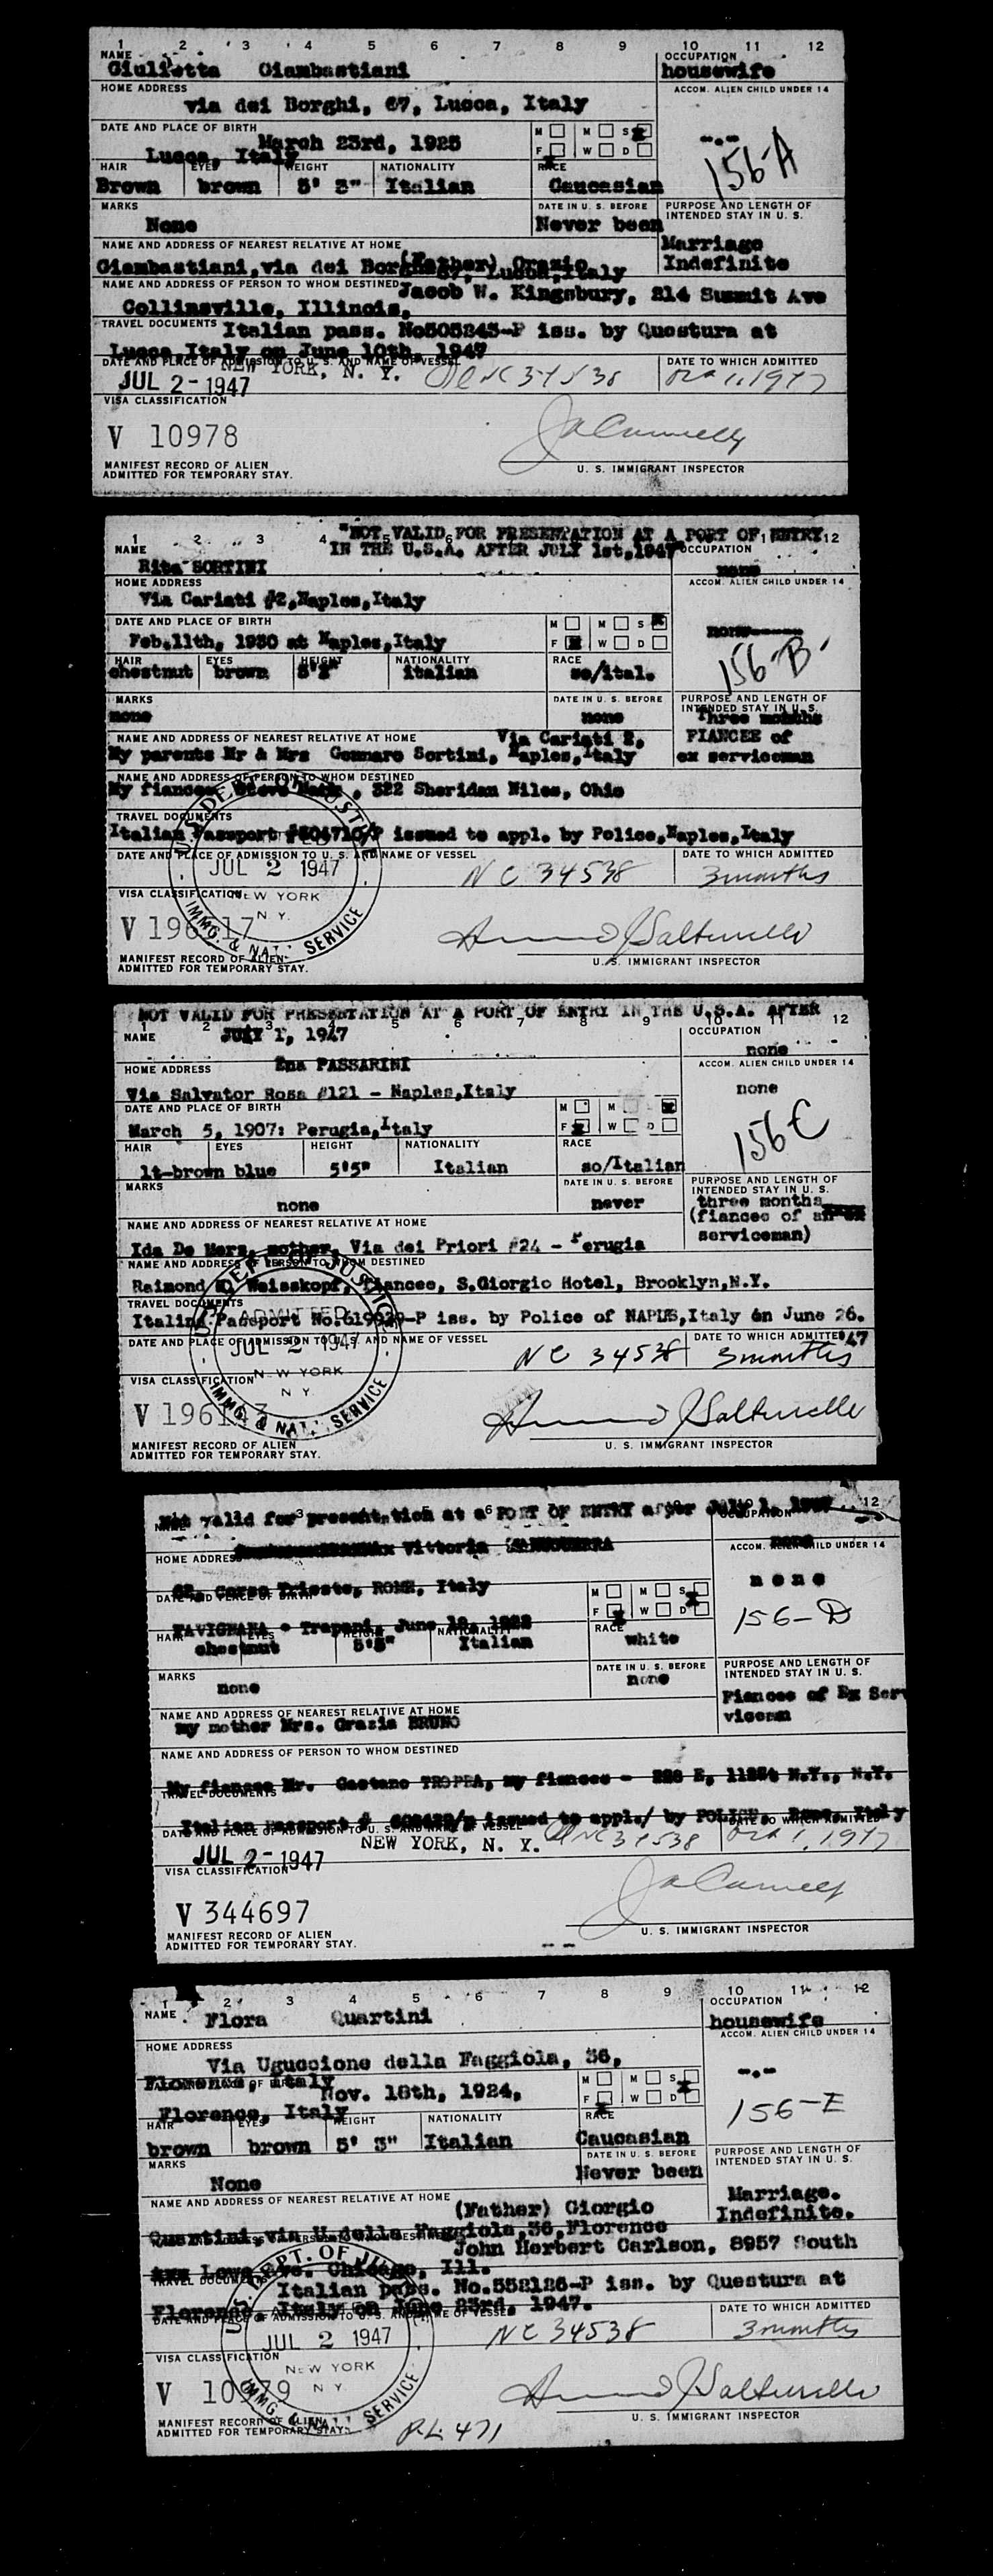 1 2 3 4 5 6 7 8 9 10 11 12
NAME OCCUPATION
Giulietta Giambastiani housewife
HOME ADDRESS ACCOM. ALIEN CHILD UNDER 14
via dei Borghi, 67, Lucca, Italy
DATE AND PLACE OF BIRTH M M S
March 23rd, 1925 -.-
Lucca, Italy F W D 156-A
HAIR EYES HEIGHT NATIONALITY RACE
Brown brown 5' 3" Italian Caucasian
MARKS DATE IN U. S. BEFORE PURPOSE AND LENGTH OF INTENDED STAY IN U. S.
None Never been
NAME AND ADDRESS OF NEAREST RELATIVE AT HOME Marriage
(Father) Orazio Indefinite
Giambastiani, via dei Borghi 67, Lucca, Italy
NAME AND ADDRESS OF PERSON TO WHOM DESTINED Jacob W. Kingsbury, 214 Summit Ave
Collinsville, Illinois,
TRAVEL DOCUMENTS Italian pass. No505245-P iss. by Questura at
Lucca Italy on June 10th, 1947
DATE AND PLACE OF ADMISSION TO U. S. AND NAME OF VESSEL DATE TO WHICH ADMITTED
JUL 2 - 1947 NEW YORK, N. Y. NC 34538 Oct 1, 1947
VISA CLASSIFICATION
V 10978
MANIFEST RECORD OF ALIEN
ADMITTED FOR TEMPORARY STAY. U. S. IMMIGRANT INSPECTOR
"NOT VALID FOR PRESENTATION AT A PORT OF ENTRY
1 2 3 4 5 6 11 12
NAME IN THE U.S.A. AFTER JULY 1st, 1947 OCCUPATION
Rita SORTINI none
HOME ADDRESS ACCOM. ALIEN CHILD UNDER 14
Via Cariati #2, Naples, Italy
DATE AND PLACE OF BIRTH M M S
none-----
Feb.11th, 1930 at Naples, Italy F W D
156-B
HAIR EYES HEIGHT NATIONALITY RACE
chestnut brown 5'2" italian so/ital.
MARKS DATE IN U. S. BEFORE PURPOSE AND LENGTH OF INTENDED STAY IN U. S.
none none Three months
NAME AND ADDRESS OF NEAREST RELATIVE AT HOME Via Cariati 2, FIANCEE of
My parents Mr & Mrs Gennaro Sortini, Naples, Italy ex serviceman
NAME AND ADDRESS OF PERSON TO WHOM DESTINED
My fiancee, Steve , 322 Sheridan Niles, Ohio
TRAVEL DOCUMENTS
Italian Passport #504710/P issued to appl. by Police, Naples, Italy
DATE AND PLACE OF ADMISSION TO U. S. AND NAME OF VESSEL DATE TO WHICH ADMITTED
U.S. DEPT. OF JUSTICE JUL 2 1947 NC 34538 3 months
VISA CLASSIFICATION NEW YORK N. Y.
V 196 17
IMMG. & NAT. SERVICE
MANIFEST RECORD OF ALIEN
ADMITTED FOR TEMPORARY STAY. U. S. IMMIGRANT INSPECTOR
NOT VALID FOR PRESENTATION AT A PORT OF ENTRY IN THE U.S.A. AFTER
1 2 3 4 5 6 7 8 9 10 11 12
NAME JULY 1, 1947 OCCUPATION
none
HOME ADDRESS Ena PASSARINI ACCOM. ALIEN CHILD UNDER 14
Via Salvator Rosa #121 - Naples, Italy none
DATE AND PLACE OF BIRTH M M
March 5, 1907: Perugia, Italy F W D 156 C
HAIR EYES HEIGHT NATIONALITY RACE
lt-brown blue 5'5" Italian so/Italian
MARKS DATE IN U. S. BEFORE PURPOSE AND LENGTH OF INTENDED STAY IN U. S.
none never three months
NAME AND ADDRESS OF NEAREST RELATIVE AT HOME (fiancee of an ex
serviceman)
Ida De Mers, mother, Via dei Priori #24 - Perugia
NAME AND ADDRESS OF PERSON TO WHOM DESTINED
Raimond Weisskopf, fiancee, S.Giorgio Hotel, Brooklyn, N.Y.
TRAVEL DOCUMENTS
Italina Passport No.619929-P iss. by Police of NAPLES, Italy on June 26.
DATE AND PLACE OF ADMISSION TO U. S. AND NAME OF VESSEL DATE TO WHICH ADMITTED 47
U.S. DEPT. OF JUSTICE ADMITTED JUL 2 1947 NC 34538 3 months
VISA CLASSIFICATION NEW YORK N Y
V 196143
IMMG. & NAT. SERVICE
MANIFEST RECORD OF ALIEN
ADMITTED FOR TEMPORARY STAY. U. S. IMMIGRANT INSPECTOR
Not valid for presentation at a PORT OF ENTRY after July 1, 1947
NAME OCCUPATION 12
HOME ADDRESS Vittoria none
ACCOM. ALIEN CHILD UNDER 14
Corso Trieste, ROME, Italy none
DATE AND PLACE OF BIRTH M M S
FAVIGNANA - Trapani, June F W D 156-D
HAIR EYES HEIGHT NATIONALITY RACE
chestnut 5'5" Italian white
MARKS DATE IN U. S. BEFORE PURPOSE AND LENGTH OF INTENDED STAY IN U. S.
none none
Fiancee of Ex Ser
NAME AND ADDRESS OF NEAREST RELATIVE AT HOME viceman
my mother Mrs. Grazia BRUNO
NAME AND ADDRESS OF PERSON TO WHOM DESTINED
My fiancee Mr. Gaetano TROPEA, my fiancee - 228 E, 112St N.Y., N.Y.
TRAVEL DOCUMENTS
Italian passport # issued to appl./ by POLICE. Rome, Italy
DATE AND PLACE OF ADMISSION TO U. S. AND NAME OF VESSEL DATE TO WHICH ADMITTED
JUL 2 - 1947 NEW YORK, N. Y. NC 34538 Oct 1, 1947
VISA CLASSIFICATION
V 344697
MANIFEST RECORD OF ALIEN
ADMITTED FOR TEMPORARY STAY. U. S. IMMIGRANT INSPECTOR
1 2 3 4 5 6 7 8 9 10 11 12
NAME OCCUPATION
Flora Quartini housewife
HOME ADDRESS ACCOM. ALIEN CHILD UNDER 14
Via Uguccione della Faggiola, 36,
Florence, Italy M M S -.-
DATE AND PLACE OF BIRTH Nov. 18th, 1924,
Florence, Italy F W D 156-E
HAIR EYES HEIGHT NATIONALITY RACE
brown brown 5' 3" Italian Caucasian
MARKS DATE IN U. S. BEFORE PURPOSE AND LENGTH OF INTENDED STAY IN U. S.
None Never been
NAME AND ADDRESS OF NEAREST RELATIVE AT HOME Marriage.
(Father) Giorgio Indefinite.
Quartini, via U.della Faggiola, 36, Florence
John Herbert Carlson, 8957 South
Lowe Ave. Chicago, Ill.
TRAVEL DOCUMENTS Italian pass. No.552126-P iss. by Questura at
Florence Italy on June 23rd, 1947.
DATE AND PLACE OF ADMISSION TO U. S. AND NAME OF VESSEL DATE TO WHICH ADMITTED
U.S. DEPT. OF JUSTICE JUL 2 1947 NC 34538 3 months
VISA CLASSIFICATION NEW YORK N Y
V 10979
IMMG. & NAT. SERVICE
MANIFEST RECORD OF ALIEN
ADMITTED FOR TEMPORARY STAY. P.L. 471 U. S. IMMIGRANT INSPECTOR